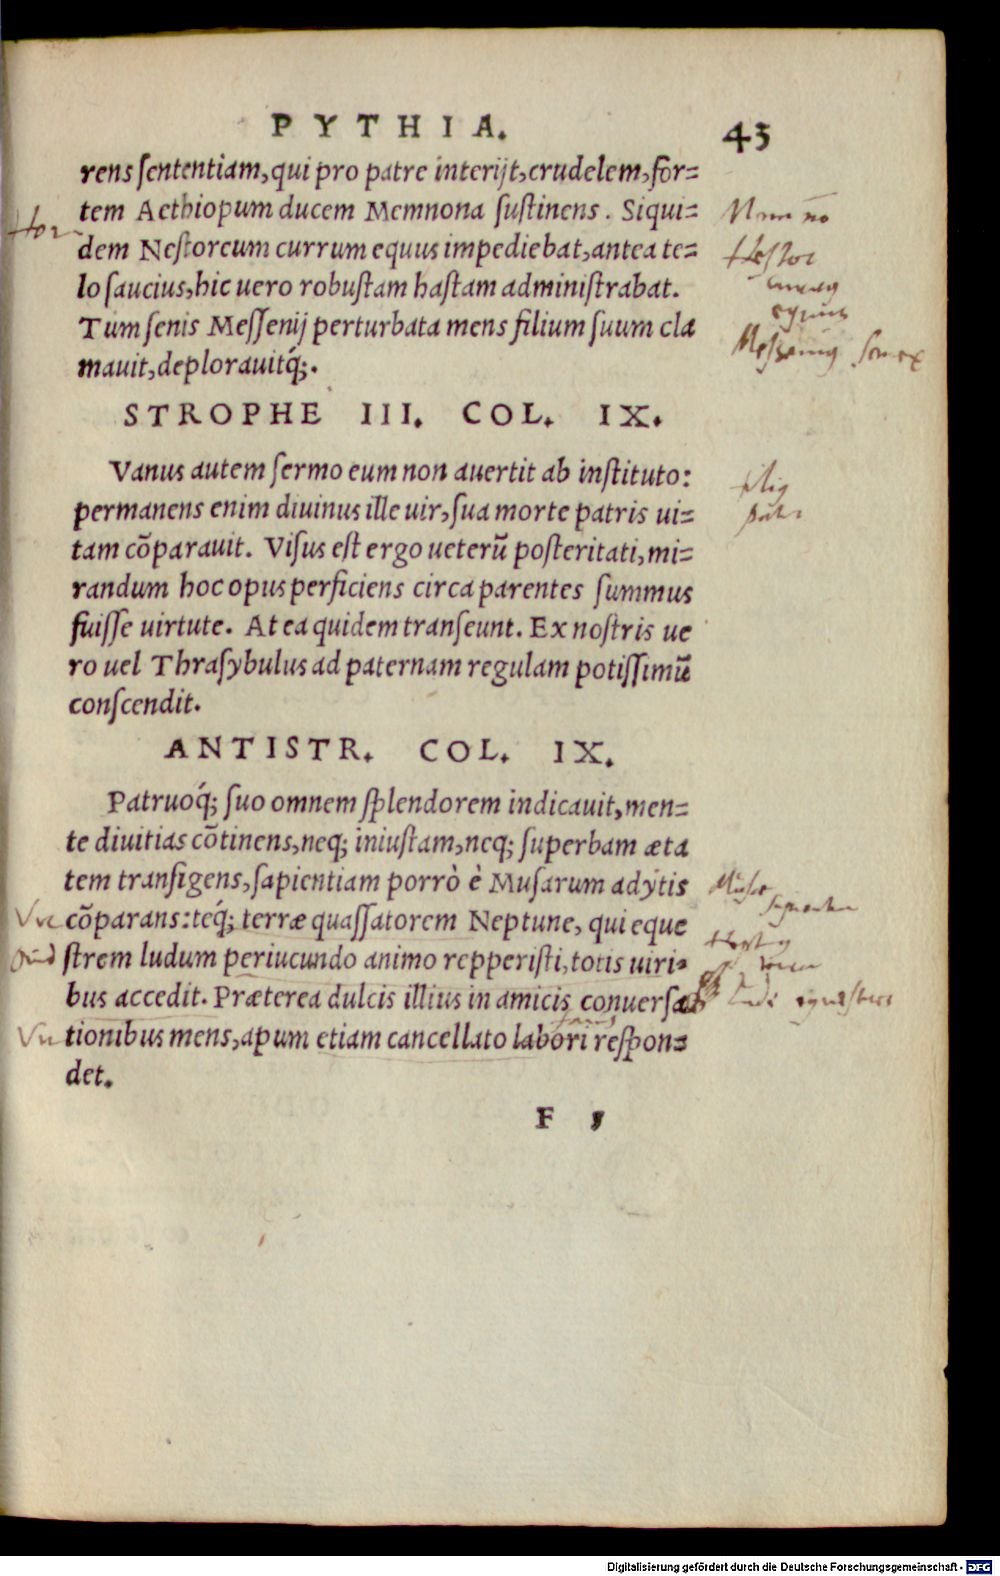 PYTHIA. 43
rens ſententiam, qui pro patre interijt, crudelem, for=
tem Aethiopum ducem Memnona ſuſtinens. Siqui=
dem Neſtoreum currum equus impediebat, antea te=
lo ſaucius, hic uero robuſtam haſtam adminiſtrabat.
Tum ſenis Meſſenij perturbata mens filium ſuum cla
mauit, deplorauitq́;.
STROPHE III. COL. IX.
Vanus autem ſermo eum non auertit ab inſtituto:
permanens enim diuinus ille uir, ſua morte patris ui=
tam cõparauit. Viſus eſt ergo ueterũ poſteritati, mi=
randum hoc opus perficiens circa parentes ſummus
fuiſſe uirtute. At ea quidem tranſeunt. Ex noſtris ue
ro uel Thraſybulus ad paternam regulam potiſſimũ
conſcendit.
ANTISTR. COL. IX.
Patruoq́; ſuo omnem ſplendorem indicauit, men=
te diuitias cõtinens, neq; iniuſtam, neq; ſuperbam æta
tem tranſigens, ſapientiam porrò è Muſarum adytis
cõparans: teq́; terræ quaſſatorem Neptune, qui eque
ſtrem ludum periucundo animo repperiſti, totis uiri=
bus accedit. Præterea dulcis illius in amicis conuerſa
tionibus mens, apum etiam cancellato labori reſpon=
det.
F 3
Neſtor
equus
Digitalisierung gefördert durch die Deutsche Forschungsgemeinschaft - DFG